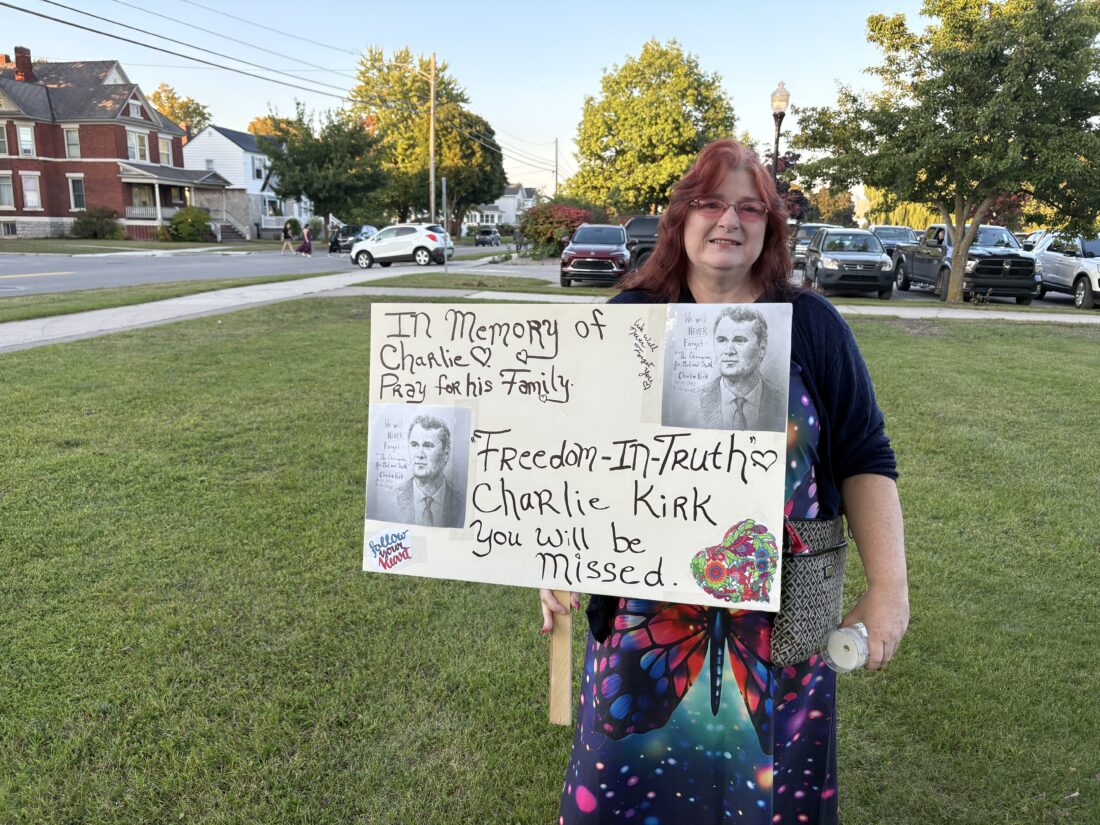 In Memory of
Charlie♡.
Pray for his Family.
We will
Never
Forget
you
We will
NEVER
Forget-
"The Champion
for God and Truth
Charlie Kirk
"Freedom-In-Truth"♡
Charlie Kirk
You will be
Missed.
We will
NEVER
Forget-
"The Champion
for God and Truth
Charlie Kirk
follow
your
Heart